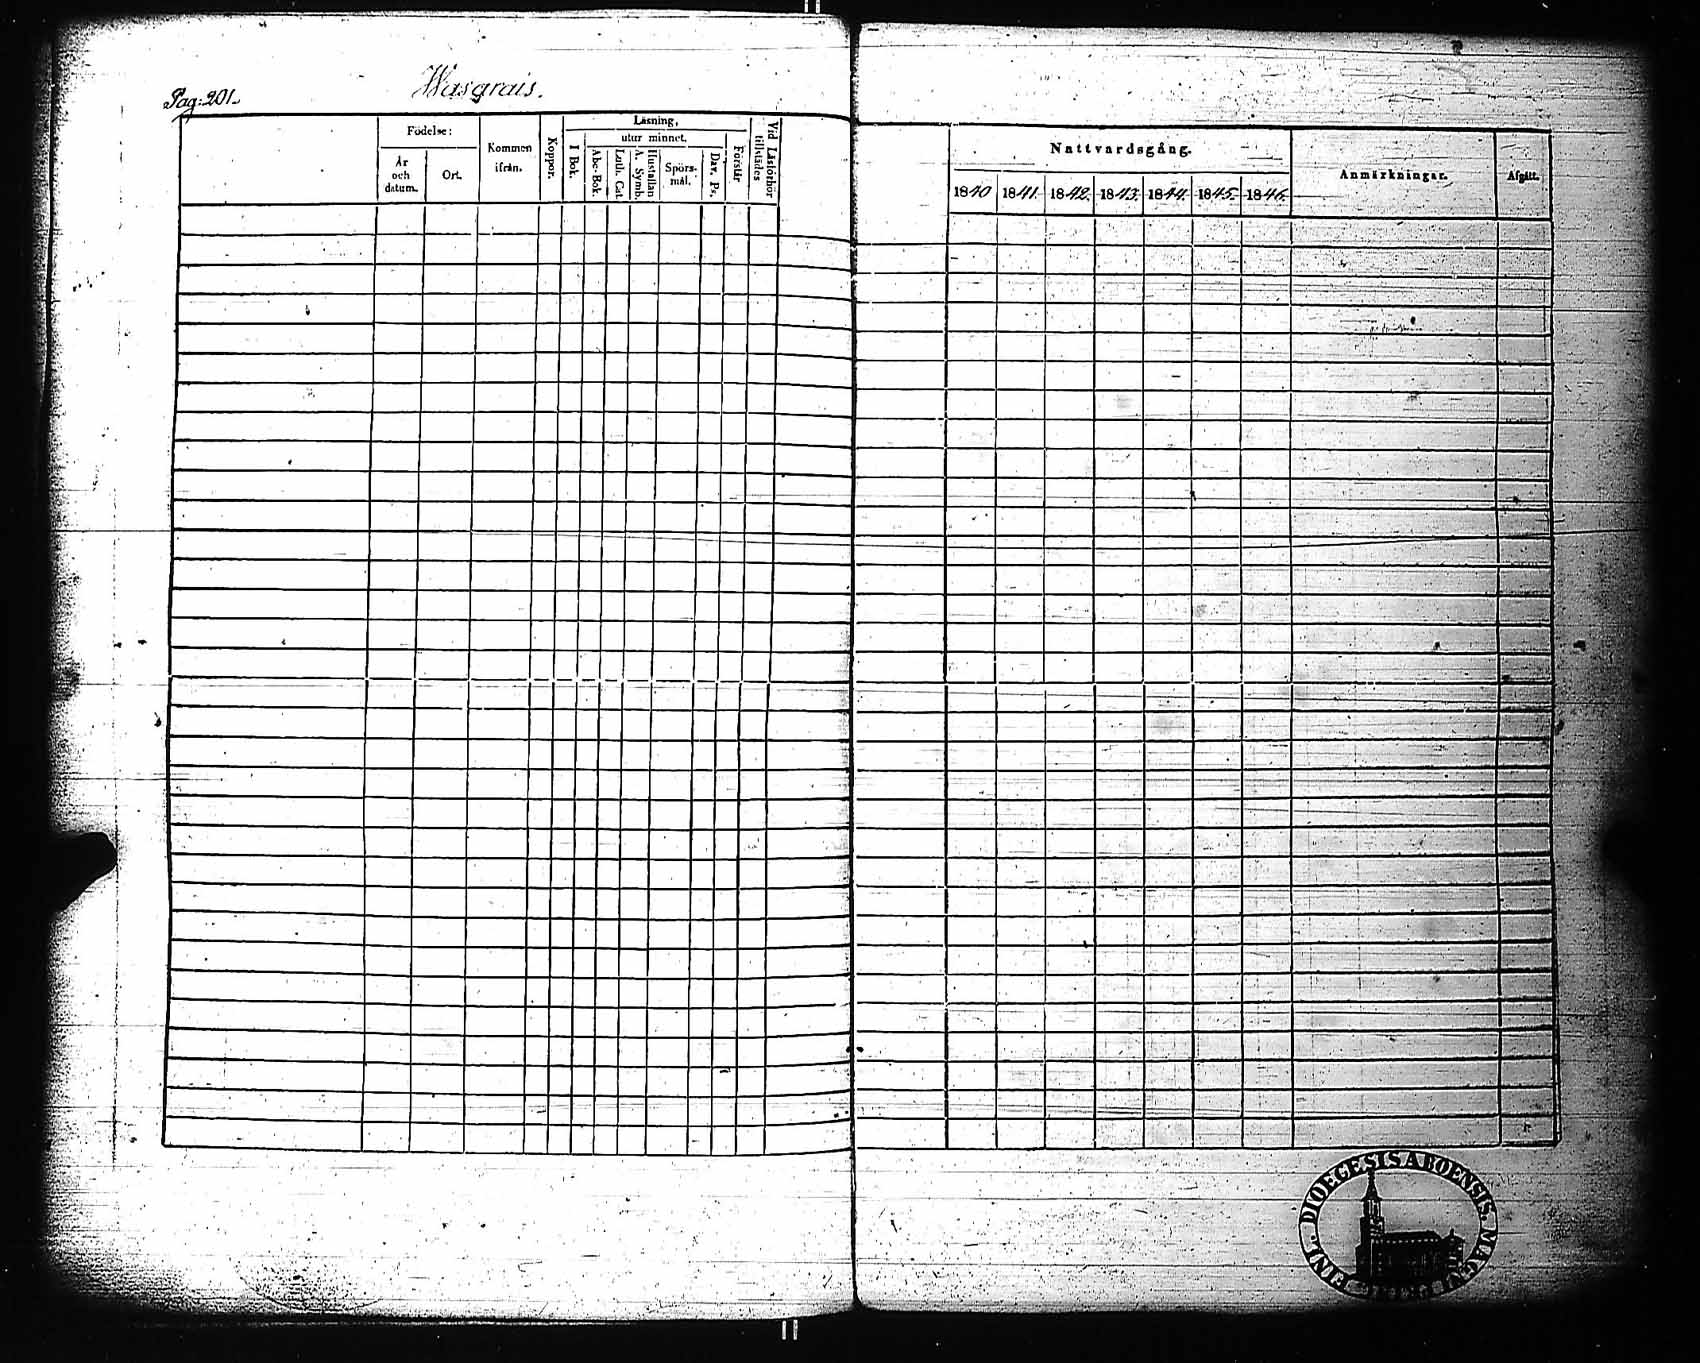 Pag: 201.
Wasarais.
Födelse:
År och datum.
Ort.
Kommen ifrån.
Koppor.
Läsning,
I Bok.
utur minnet.
Abc-Bok.
Luth. Cat.
Hustaflan
A. Symb.
Spörs-mål.
Dav. Ps.
Förstår
Vid Läsförhör tillstädes
Nattvardsgång.
1840 1841. 1842. 1843. 1844. 1845. 1846.
Anmärkningar.
Afgått.
DIOECESIS ABOENSIS. MAGNI
FINL.